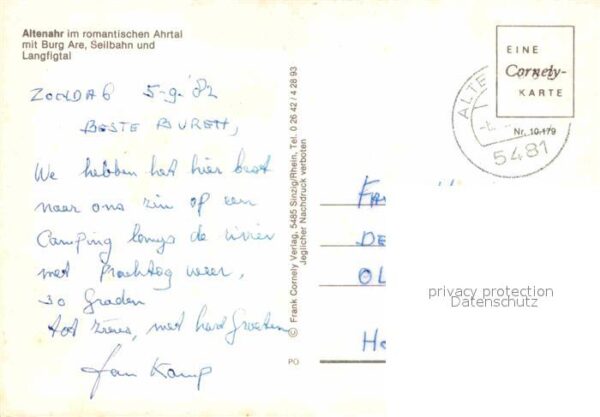 Altenahr im romantischen Ahrtal
mit Burg Are, Seilbahn und
Langfigtal
ZONDAG 5-9-'82
BESTE BUREN,
We hebben het hier best
naar ons zin op een
Camping langs de rivier
met Prachtog weer,
30 Graden
tot ziens, met hart Groeten
Jan Kamp
© Frank Cornely Verlag, 5485 Sinzig/Rhein, Tel. 0 26 42 / 4 28 93
Jeglicher Nachdruck verboten
PO
EINE
Cornely-
KARTE
Nr. 10.179
ALTE
5481
FA
DE
OL
He
privacy protection
Datenschutz